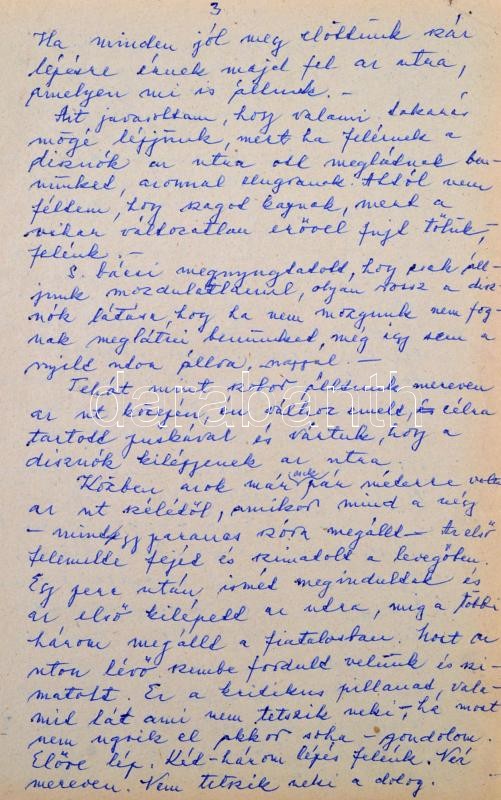 3
Ha minden jól meg előttünk szár
lépésre érnek majd fel az utra,
amelyen mi is állunk. -
Azt javasoltam, hogy valami takarás
mögé lépjünk, mert ha felérnek a
disznók az utra ott meglátnak ben-
nünket, azonnal elugranak. Attól nem
féltem, hogy szagot kapnak, mert a
vihar változatlan erővel fujt tőlük,
felénk. -
S. bácsi megnyugtatott, hogy csak áll-
junk mozdulatlanul, olyan rossz a disz-
nók látása, hogy ha nem mozgunk nem fog-
nak meglátni bennünket, még igy sem a
nyilt uton állva, nappal. -
Tehát mint szobor álltunk mereven
az ut közepén, én vállhoz emelt, és célra
tartott puskával és vártuk, hogy a
disznók kilépjenek az utra.
Közben azok már csak pár méterre voltak
az ut szélétől, amikor mind a négy
- mintegy parancs szóra megállt - Az első
felemelte fejét és szimatolt a levegőben.
Egy perc után, ismét megindultak és
az első kilépett az utra, mig a többi
három megállt a fiatalosban. Most az
uton lévő szembe fordult velünk és szi-
matolt. Ez a kritikus pillanat, vala-
mit lát ami nem tetszik neki -, ha most
nem ugrik el akkor soha - gondolom.
Előre lép. Két-három lépés felénk. Néz
mereven. Nem tetszik neki a dolog.
darabanth